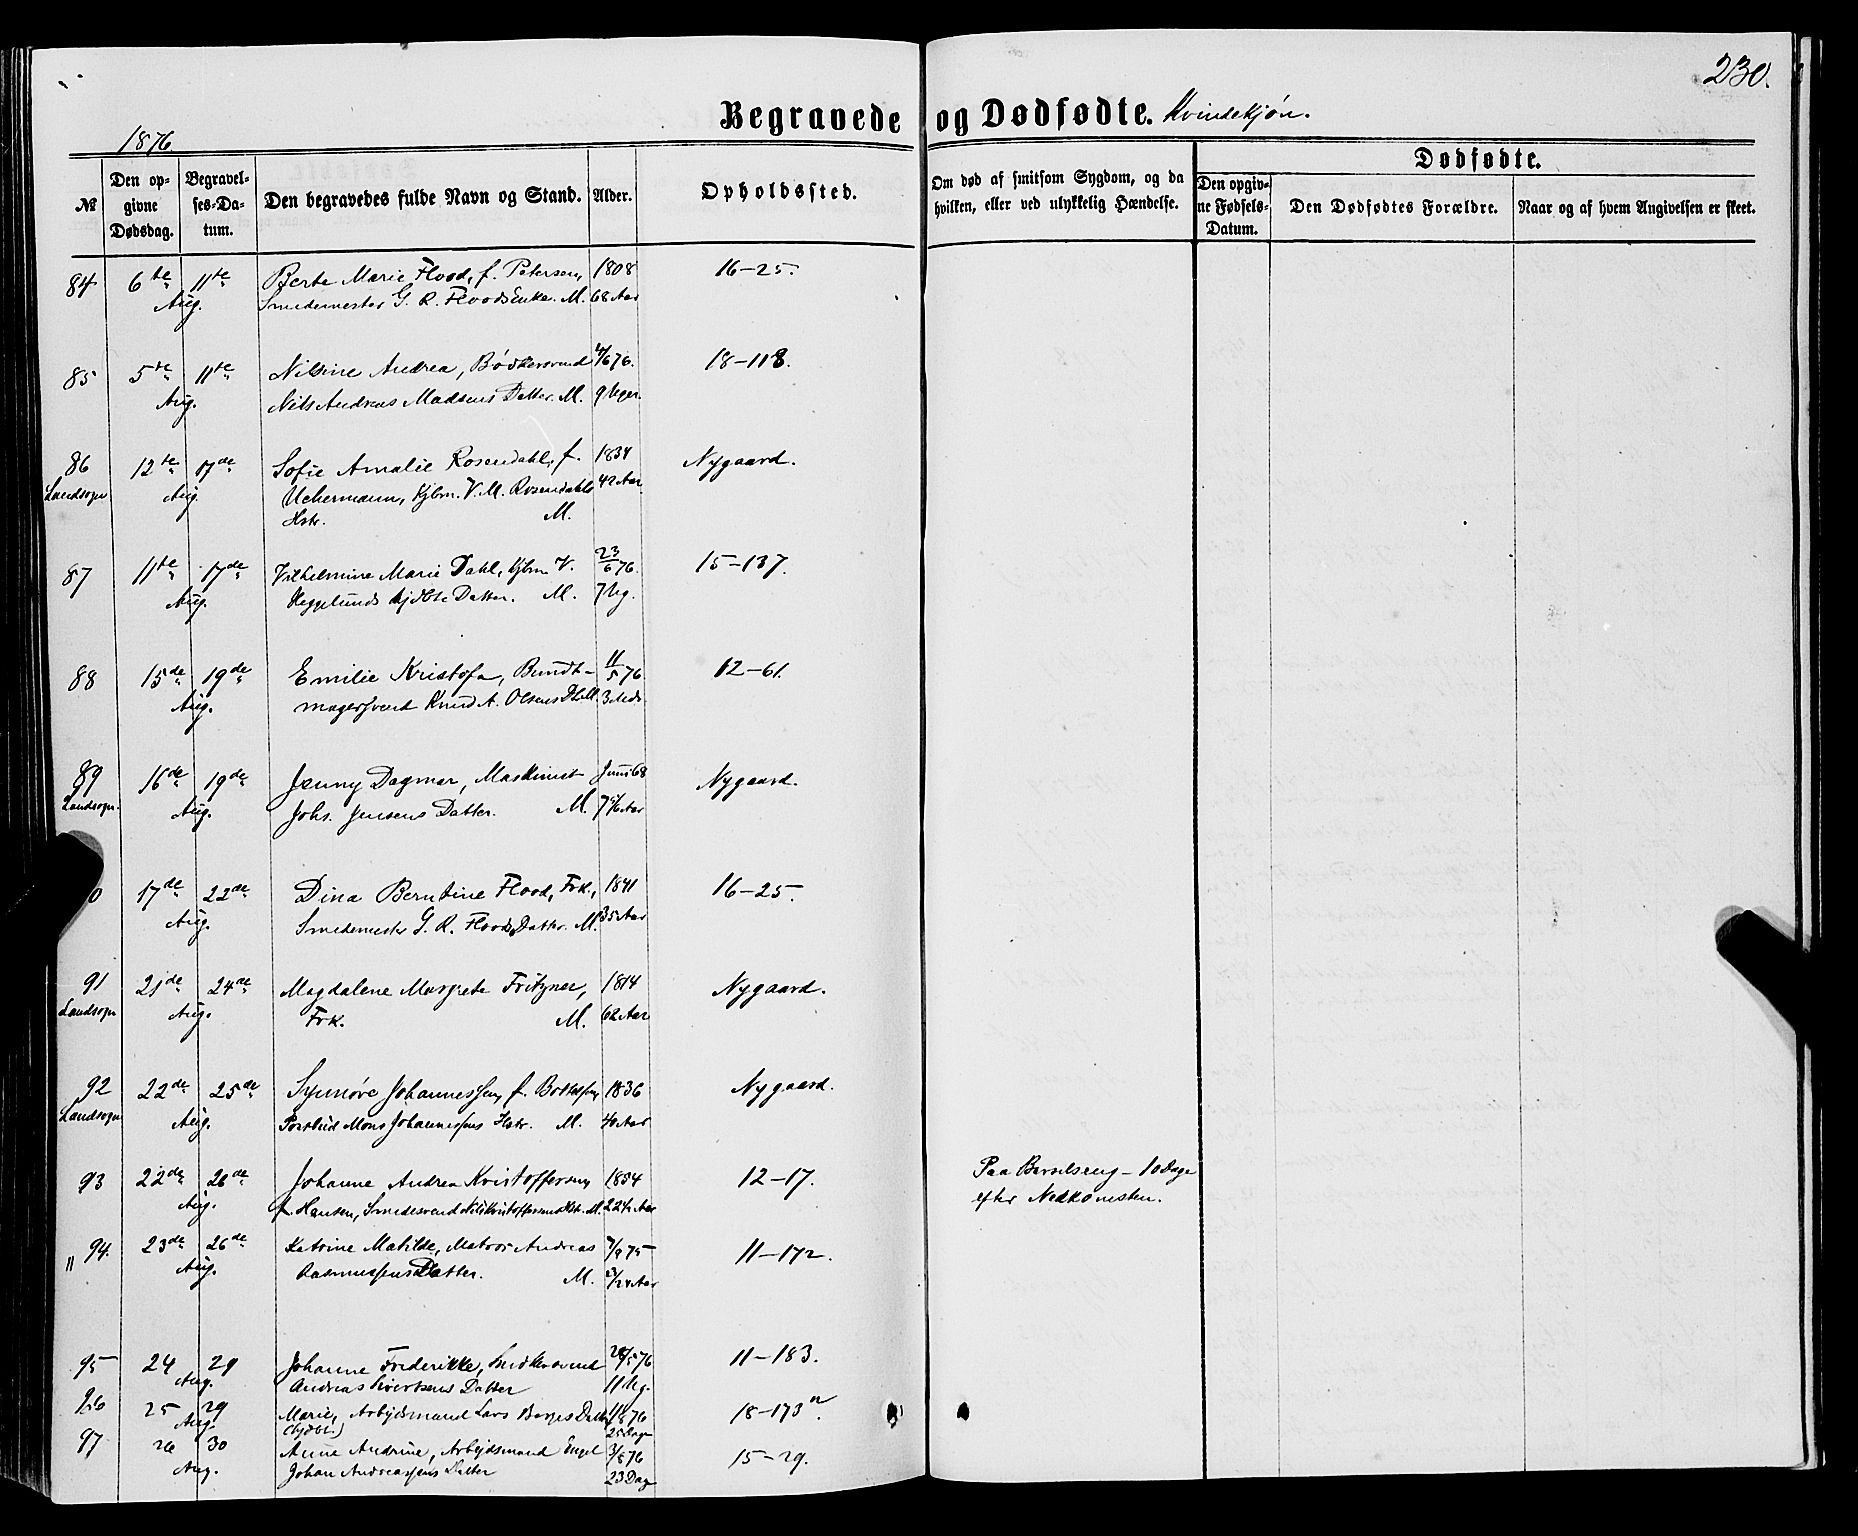 230.
Begravede og Dødfødte. Kvindekjøn.
1876
Dødfødte.
№
Den opgivne Dødsdag.
Begravelses-Datum.
Den begravedes fulde Navn og Stand.
Alder.
Opholdssted.
Om død af smitsom Sygdom, og da
hvilken, eller ved ulykkelig Hændelse.
Den opgivne Fødsels-Datum.
Den Dødfødtes Forældre.
Naar og af hvem Angivelsen er skeet.
84 6te 11te Berte Marie Flood, f. Petersen, 1808 16-25.
Aug. Smedemester G. R. Floods Enke. M. 68 Aar
85 5te 11te Nilsine Andrea, Bødkersvend /676. 18-118.
Aug. Nils Andreas Madsens Datter. M. 9 Uger.
86 12te 17de Sofie Amalie Rosendahl, f. 1834 Nygaard.
Landsogn Aug. Uchermann, Kjbm. V. M. Rosendahls 42 Aar
Hstr. M.
87 11te 17de Vilhelmine Marie Dahl, Kjbm V. 23/6 76. 15-137.
Aug. Heggelunds Datter. M. 7 Ug.
88 15de 19de Emilie Kristofa, Bundt- 11/5 76 12-61.
Aug. magersvend Knud A. Olsens M. 3 Mdr.
89 16de 19de Jenny Dagmar, Maskinist Juni 68 Nygaard.
Landsogn. Aug. Johs. Jensens Datter. M. 7 Aar
0 17de 22de Dina Berntine Flood, Frk., 1841 16-25.
Aug. Smedemester G. R. Floods Datter. M. 35 Aar
91 21de 24de Magdalene Margrete Fritzner, 1814 Nygaard.
Landsogn Aug. Frk. M. 62 Aar
92 22de 25de Synnøve Johannessen, f. 1836 Nygaard.
Landsogn Aug. Postbud Mons Johannessens Hstr. M. 40 Aar
93 22de 26de Johanne Andrea Kristoffersen, 1854 12-17. Paa Barselseng - 10 Dage
Aug. f. Hansen, Smedesvend Nils Kristoffersens Hstr. M. Aar efter Nedkomsten.
" 94. 23de 26de Katrine Matilde, Matros Andreas 7/975 11-172.
Aug. Rasmussens Datter. M. /24 Aar
95 24 29 Johanne Frederikke, Snedkersvend /576 11-183.
Aug. Andreas Sivertsens Datter 11 Ug.
96 25 29 Marie, Arbejdsmand Lars Berges Datter /876 18-173
Aug. 25 Dage
97 26 30 Anne Andrine, Arbejdsmand Engel 3/876 15-29.
Aug. Johan Andreassens Datter 23 Dage